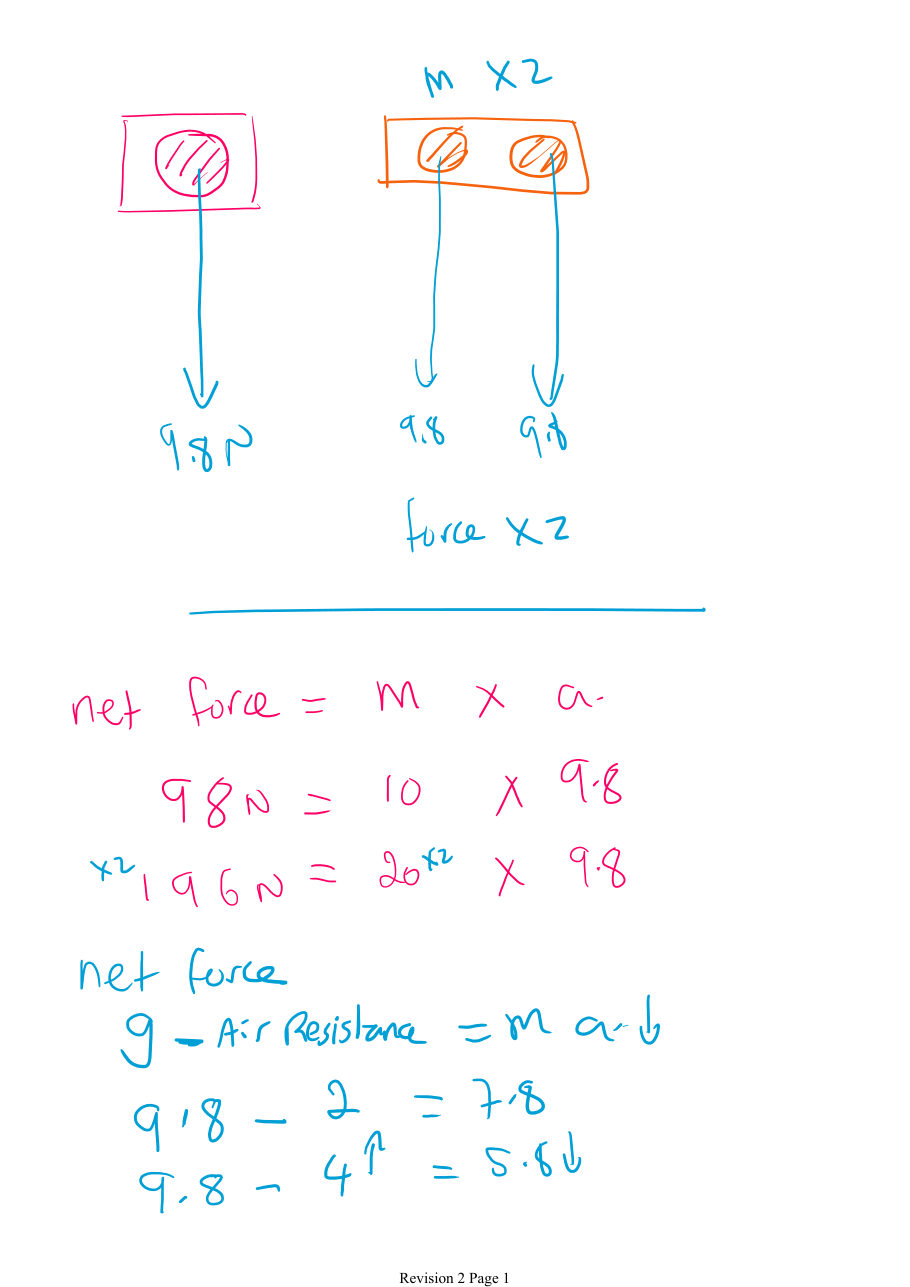 m x2
9.8N
9.8 9.8
force x2
net force = m x a.
98N = 10 x 9.8
x2 196N = 20 x2 x 9.8
net force
g - Air Resistance = m a. ↓
9.8 - 2 = 7.8
9.8 - 4↑ = 5.8↓
Revision 2 Page 1